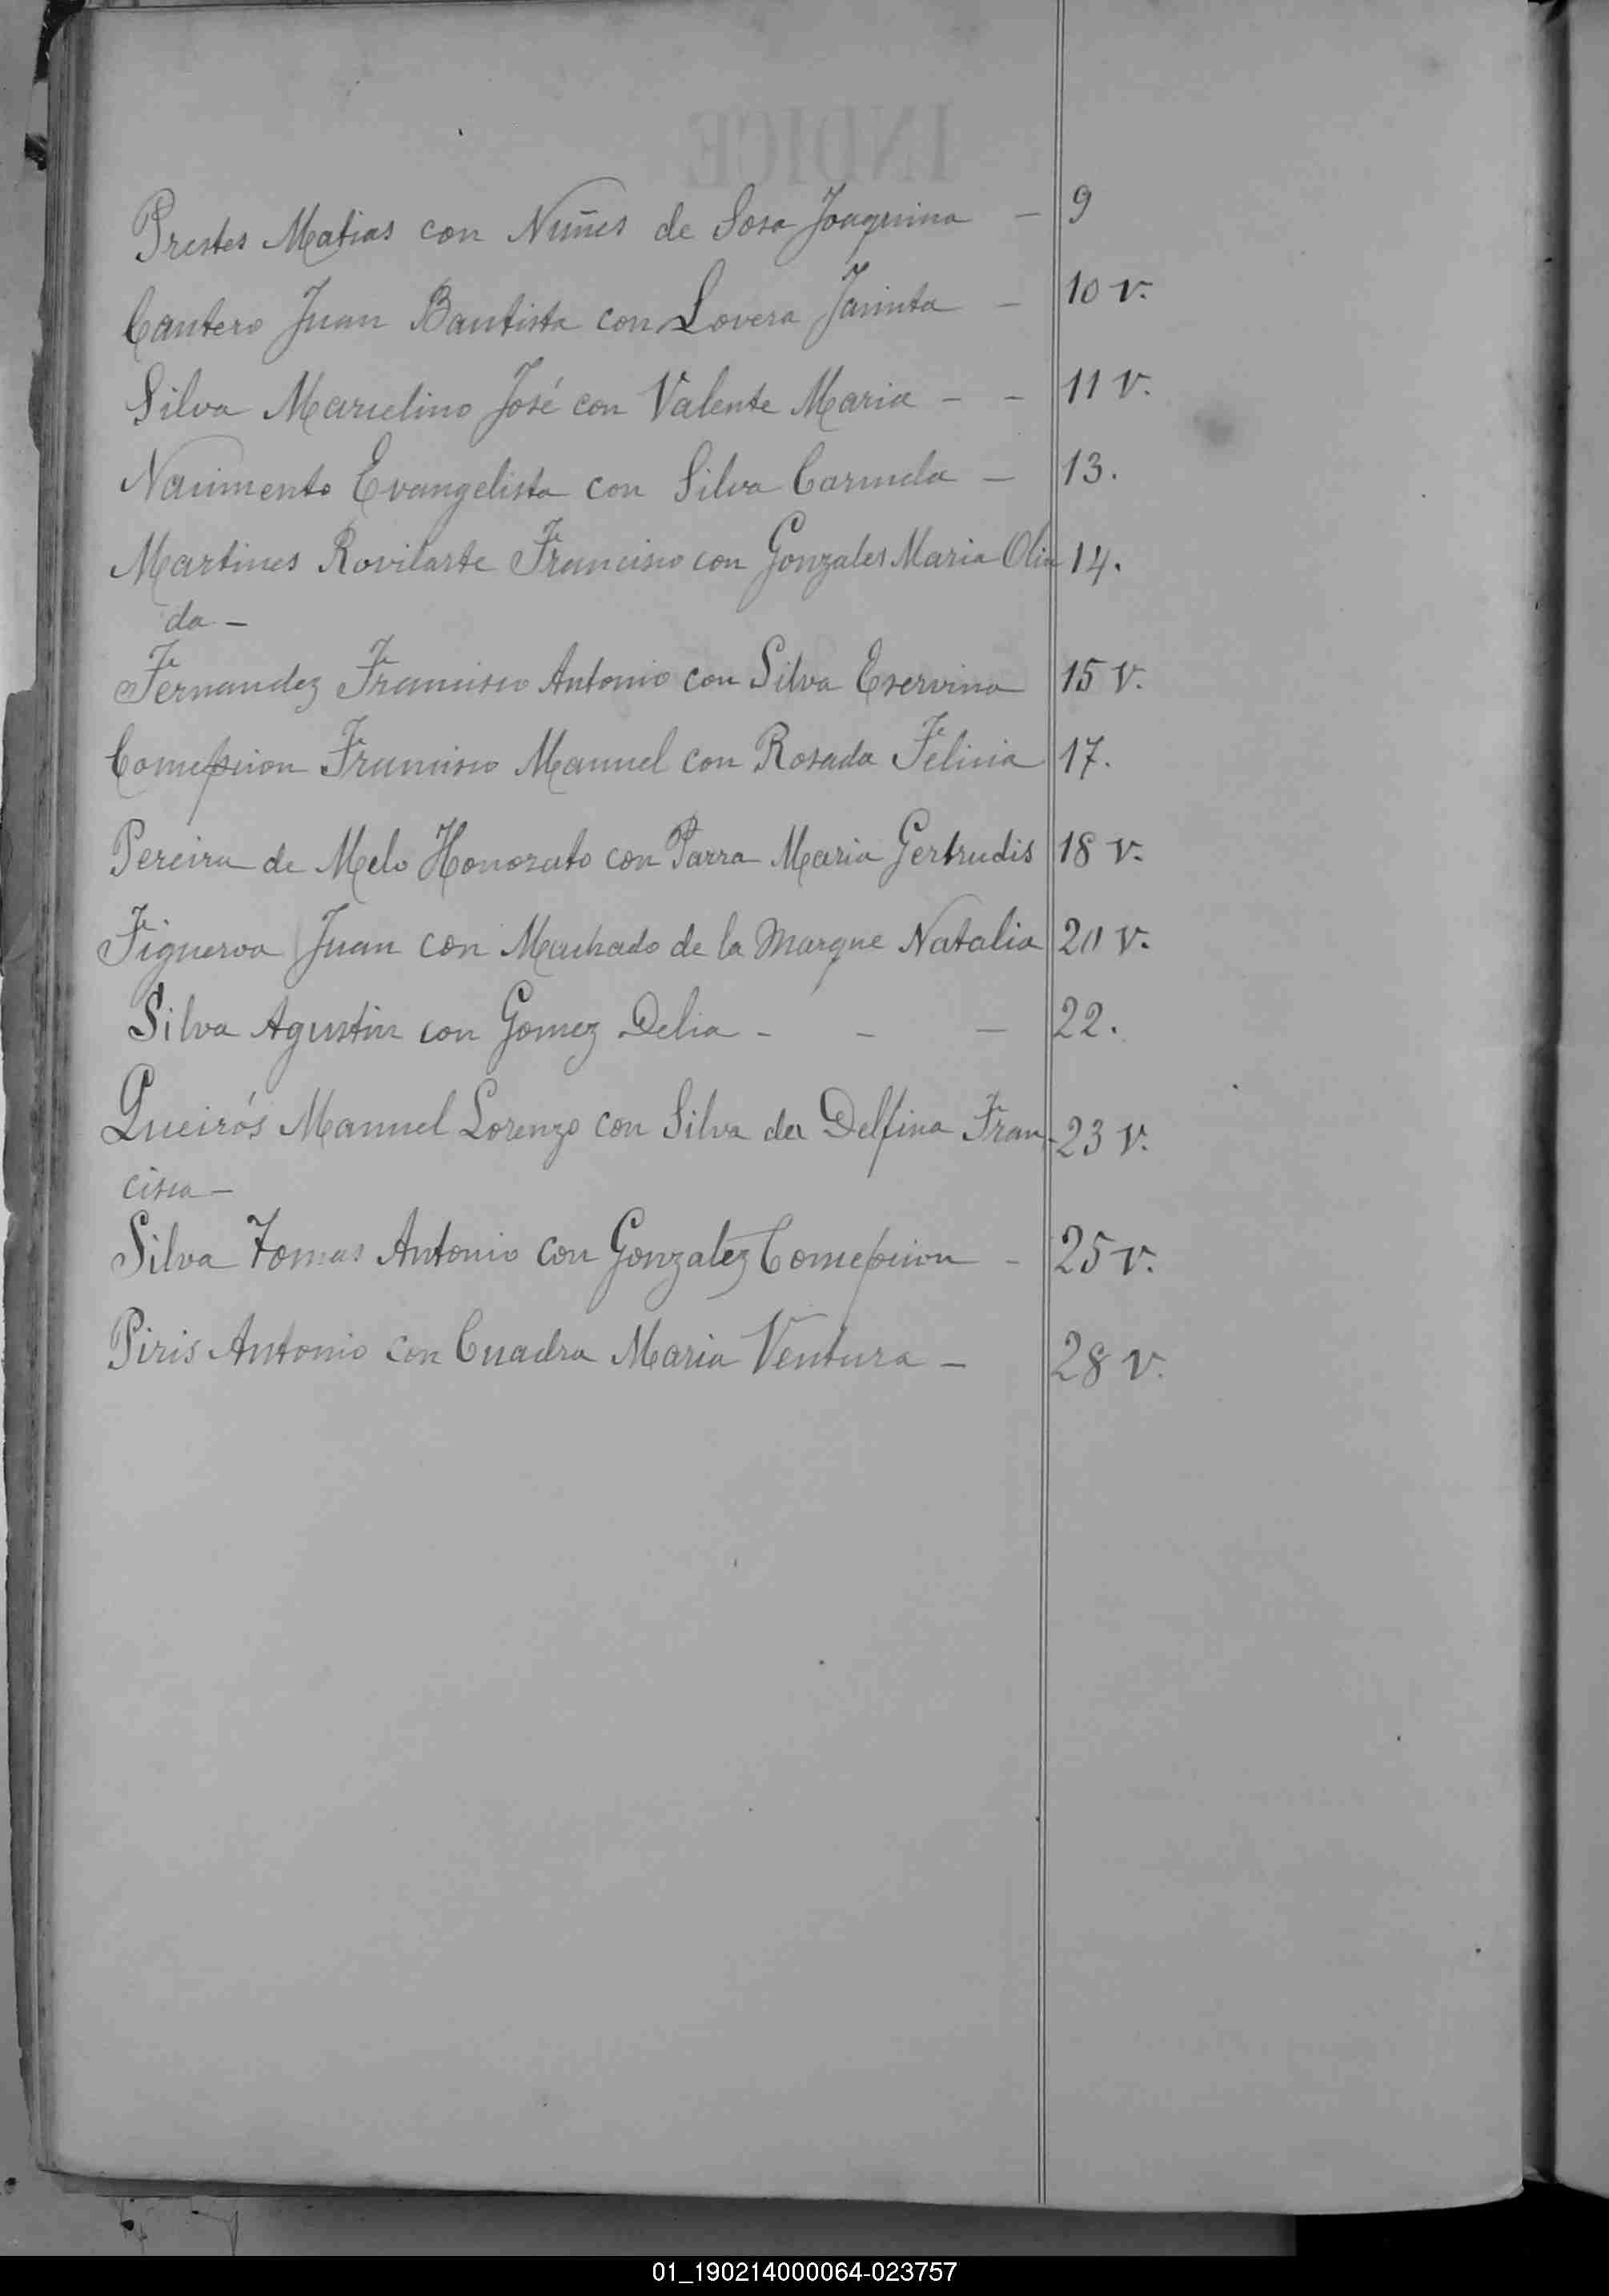 INDICE
Prestes Matias con Nuñes de Sosa Joaquina — 9
Cantero Juan Bautista con Lovera Jacinta — 10 v.
Silva Marcelino José con Valente Maria - - 11 v.
Nacimento Evangelista con Silva Caricilda — 13.
Martines Rovilarte Francisco con Gonzales Maria Olin 14.
da -
Fernandez Francisco Antonio con Silva Eservina 15 v.
Concepcion Francisco Manuel con Rosada Felicia 17.
Pereira de Melo Honorato con Parra Maria Gertrudis 18 v.
Figueroa Juan con Machado de la Marque Natalia 20 v.
Silva Agustin con Gomez Delia - - — 22.
Queirós Manuel Lorenzo con Silva da Delfina Fran- 23 v.
cisca -
Silva Tomas Antonio con Gonzalez Concepcion - 25 v.
Piris Antonio con Cuadra Maria Ventura - 28 v.
01_190214000064-023757